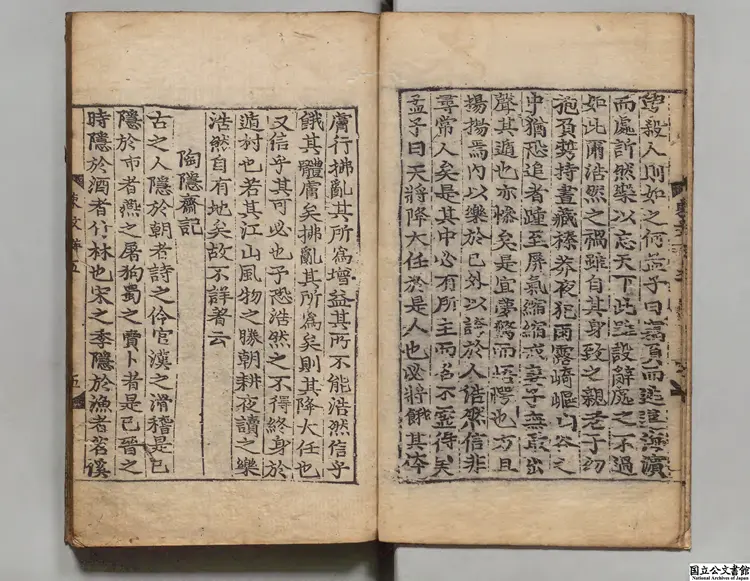 瞍殺人則如之何孟子曰竊負而逃遵海濱
而處訢然樂以忘天下此雖設辭處之不過
如此爾浩然之禍雖自其身致之親老子幼
抱負勢持晝藏榛莽夜犯雨露崎嶇山谷之
中猶恐追者踵至屏氣縮縮戒妻子無取出
聲其遁也亦慘矣是宜夢驚而寤愕也方且
揚揚焉內以樂於已外以誇於人浩然信非
尋常人矣是其中必有所主而名不虛得矣
孟子曰天將降大任於是人也必將餓其体
膚行拂亂其所爲增益其所不能浩然信乎
餓其體膚矣拂亂其所爲矣則其降大任也
又信乎其可必也予恐浩然之不得終身於
遁村也若其江山風物之勝朝耕夜讀之樂
浩然自有地矣故不詳著云
陶隱齋記
古之人隱於朝者詩之伶官漢之滑稽是已
隱於市者燕之屠狗蜀之賣卜者是已晉之
時隱於酒者竹林也宋之季隱於漁者苕溪
東文粹五
五
国立公文書館
National Archives of Japan